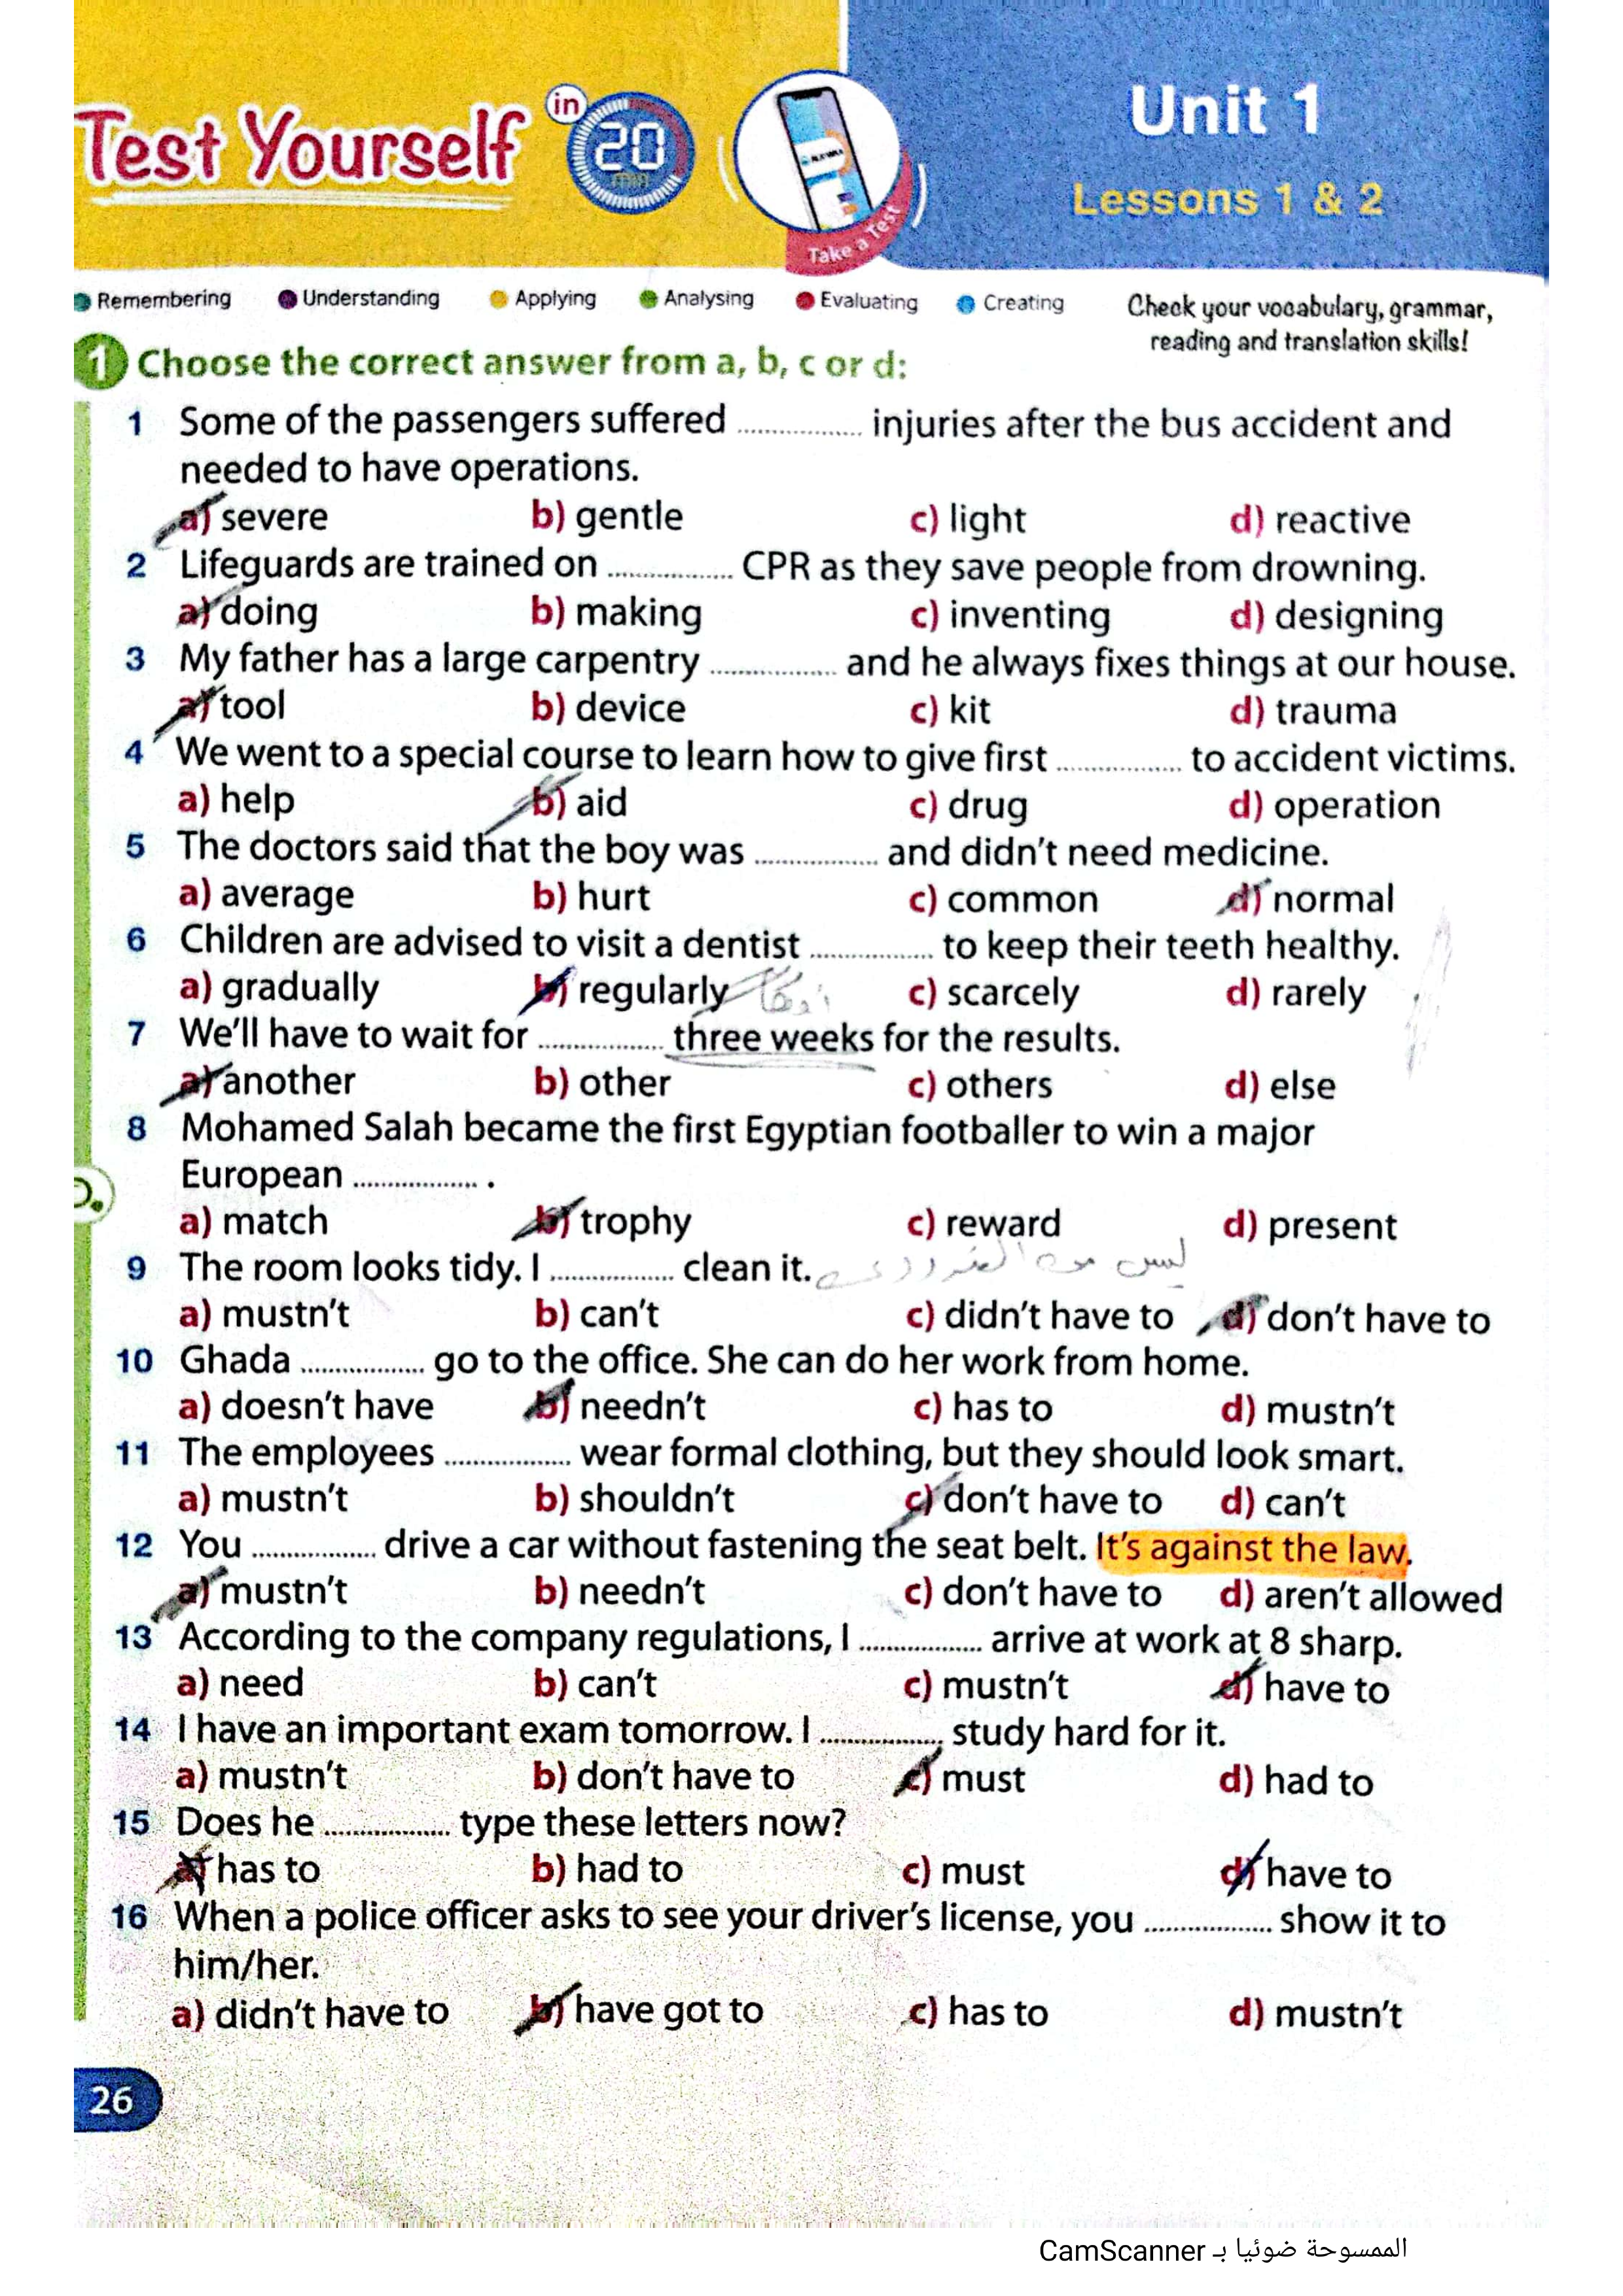 Test Yourself in 20 min
Take a Test
Unit 1
Lessons 1 & 2
Remembering Understanding Applying Analysing Evaluating Creating
Check your vocabulary, grammar,
reading and translation skills!
1 Choose the correct answer from a, b, c or d:
1 Some of the passengers suffered ................ injuries after the bus accident and
needed to have operations.
a) severe b) gentle c) light d) reactive
2 Lifeguards are trained on ................ CPR as they save people from drowning.
a) doing b) making c) inventing d) designing
3 My father has a large carpentry ................ and he always fixes things at our house.
a) tool b) device c) kit d) trauma
4 We went to a special course to learn how to give first ................ to accident victims.
a) help b) aid c) drug d) operation
5 The doctors said that the boy was ................ and didn't need medicine.
a) average b) hurt c) common d) normal
6 Children are advised to visit a dentist ................ to keep their teeth healthy.
a) gradually b) regularly c) scarcely d) rarely
7 We'll have to wait for ................ three weeks for the results.
a) another b) other c) others d) else
8 Mohamed Salah became the first Egyptian footballer to win a major
European ................ .
a) match b) trophy c) reward d) present
9 The room looks tidy. I ................ clean it. ليس من الضروري
a) mustn't b) can't c) didn't have to d) don't have to
10 Ghada ................ go to the office. She can do her work from home.
a) doesn't have b) needn't c) has to d) mustn't
11 The employees ................ wear formal clothing, but they should look smart.
a) mustn't b) shouldn't c) don't have to d) can't
12 You ................ drive a car without fastening the seat belt. It's against the law.
a) mustn't b) needn't c) don't have to d) aren't allowed
13 According to the company regulations, I ................ arrive at work at 8 sharp.
a) need b) can't c) mustn't d) have to
14 I have an important exam tomorrow. I ................ study hard for it.
a) mustn't b) don't have to c) must d) had to
15 Does he ................ type these letters now?
a) has to b) had to c) must d) have to
16 When a police officer asks to see your driver's license, you ................ show it to
him/her.
a) didn't have to b) have got to c) has to d) mustn't
26
الممسوحة ضوئيا بـ CamScanner